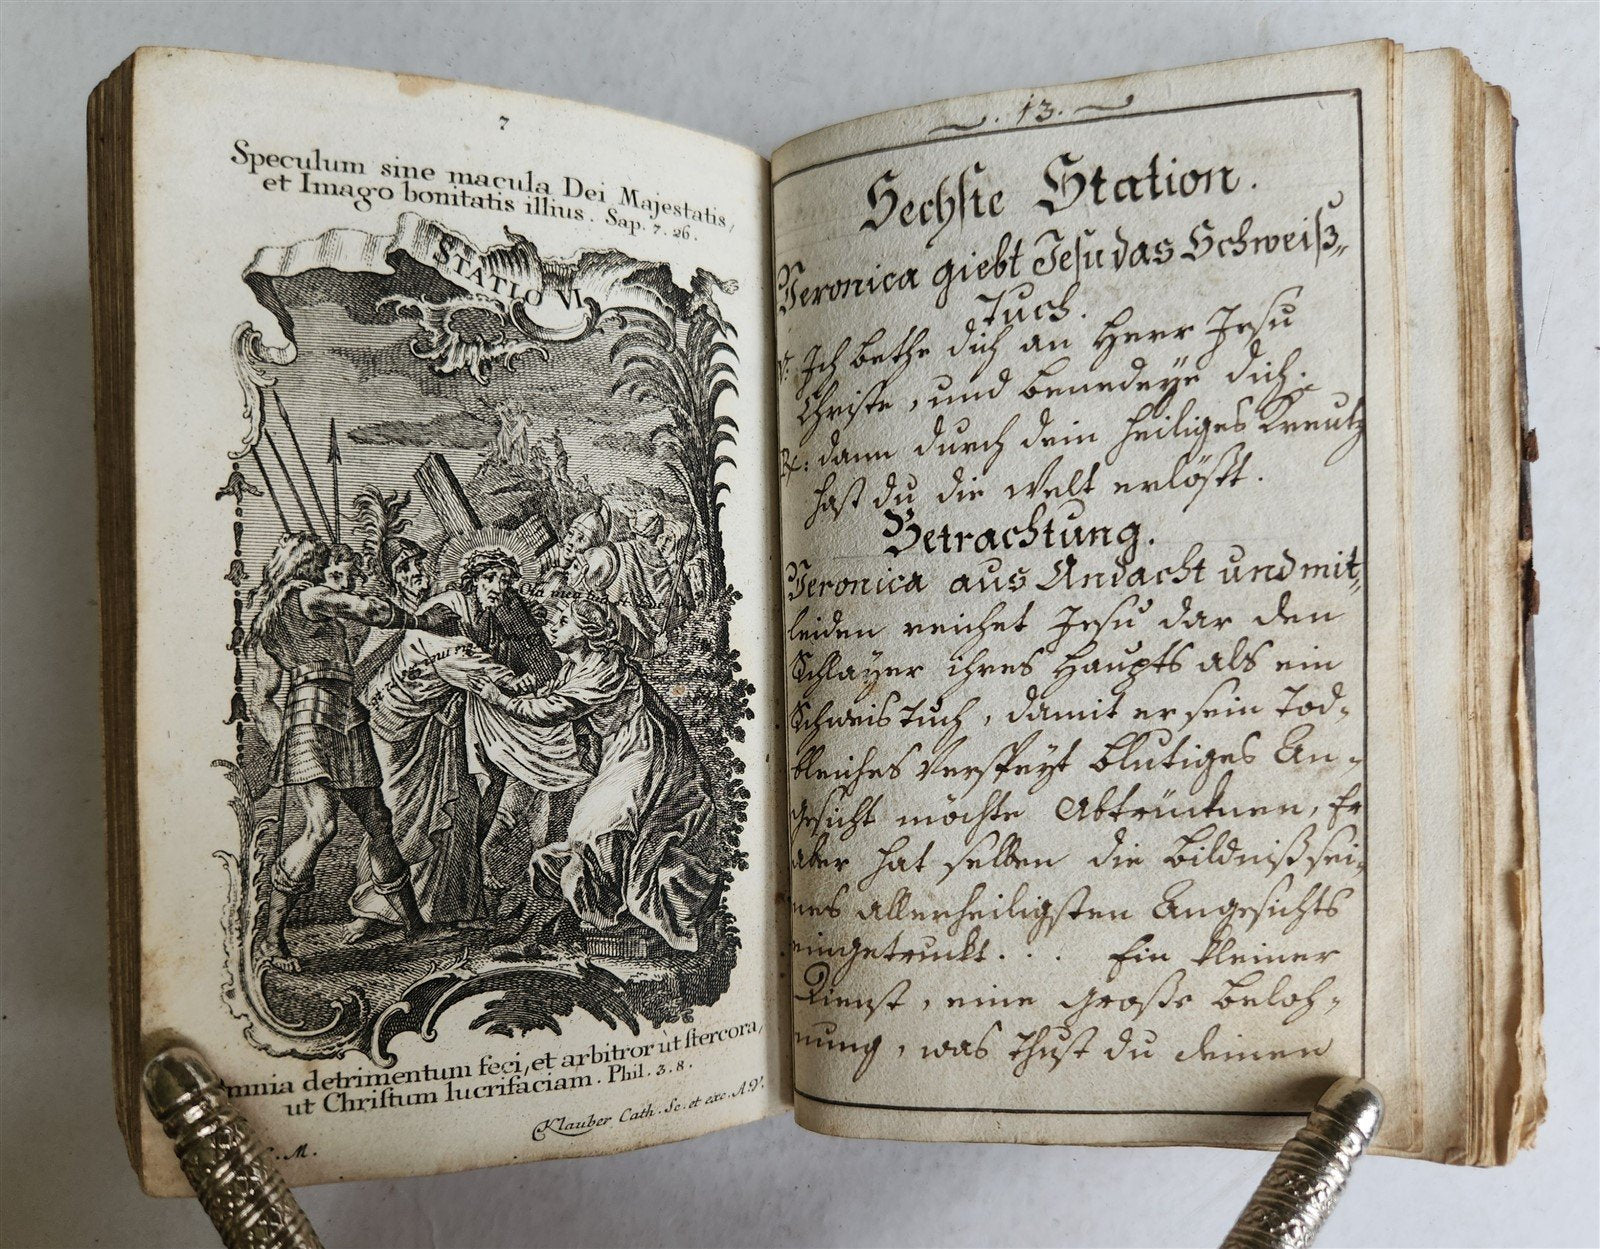 7
Speculum sine macula Dei Majestatis,
et Imago bonitatis illius. Sap. 7. 26.
STATIO VI
omnia detrimentum feci, et arbitror ùt stercora,
ut Christum lucrifaciam. Phil. 3. 8.
Klauber Cath. Sc. et exc. A.V.
C.M.
13.
Sechste Station.
Veronica giebt Jesu das Schweiß-
Tuch.
V: Ich bethe dich an Herr Jesu
Christe, und benedeÿe dich.
R: dann durch dein heiliges Kreutz
hast du die Welt erlöst.
Betrachtung.
Veronica aus Andacht und mit-
leiden reichet Jesu dar den
Schlaÿer ihres Haupts als ein
Schweis Tuch, damit er sein Tod-
bleiches Verspeyt blutiges An-
gesicht möchte Abtrücknen, Er
aber hat selben die bildniß sei-
nes allerheiligsten Angesichts
eingetruckt. . . Ein kleiner
Dienst, eine große beloh-
nung, was thust du deinen